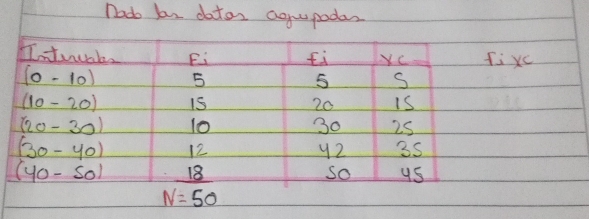 Dado los datos agrupados
Intervalos Fi fi xc fi xc
(0 - 10) 5 5 5
(10 - 20) 15 20 15
(20 - 30) 10 30 25
(30 - 40) 12 42 35
(40 - 50) 18 50 45
N = 50